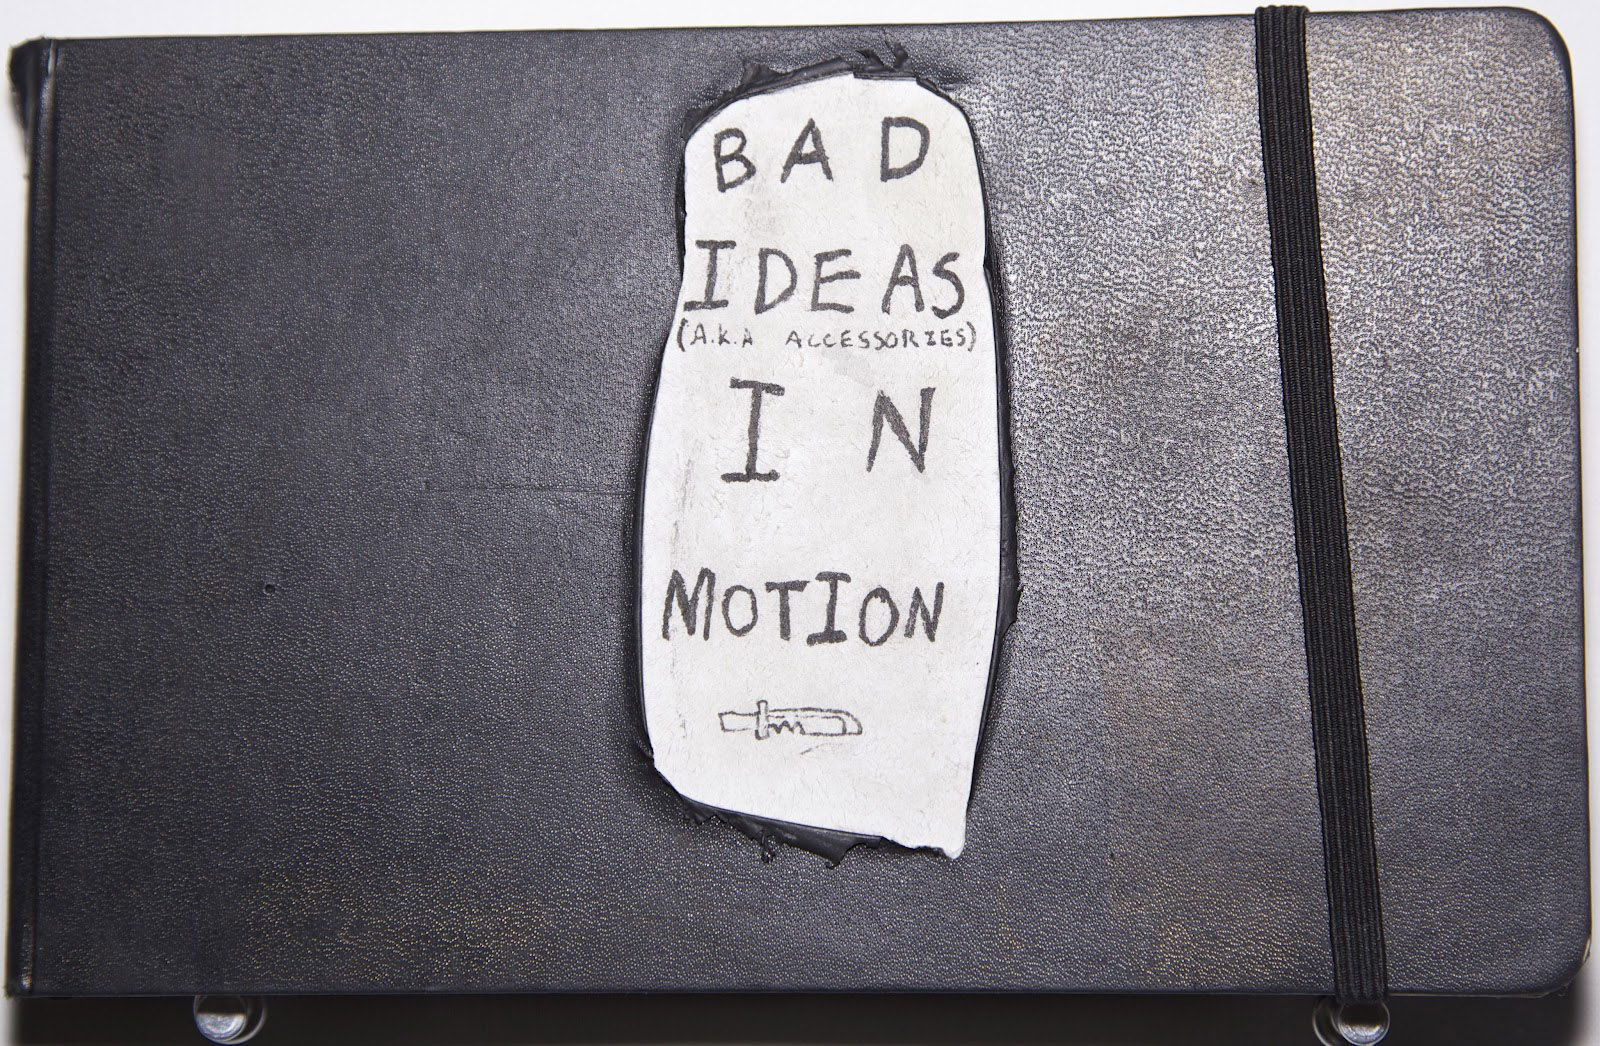 BAD
IDEAS
(A.K.A ACCESSORIES)
IN
MOTION